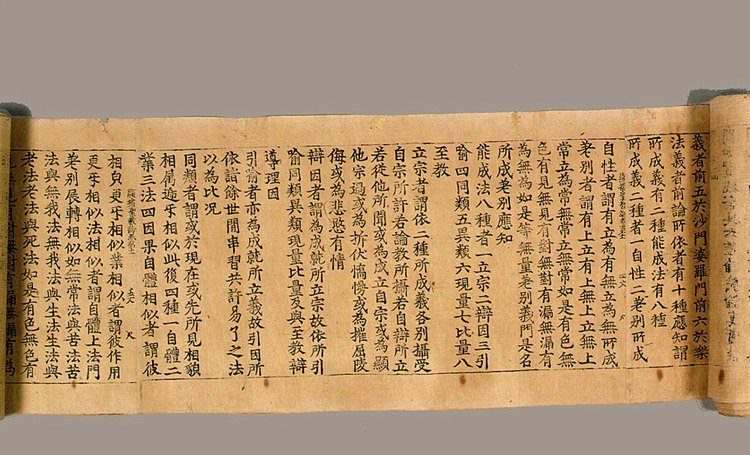 義者前五於沙門婆羅門前六於樂
法義者前論所依者有十種應知謂
所成義有二種能成法有八種
所成義有二種者一自性二差別所成
自性者謂有立為有無立為無所成
差別者謂有上立有上無上立無上
常立為常無常立無常如是有色無
色有見無見有對無對有漏無漏有
為無為如是等無量差別義門是名
所成差別應知
能成法八種者一立宗二辯因三引
喻四同類五異類六現量七比量八
至教
立宗者謂依二種所成義各別攝受
自宗所許若論教所攝若自辯所立
若從他所聞或為成立自宗或為顯
他宗過或為折伏憍慢或為摧屈陵
侮或為悲愍有情
辯因者謂為成就所立宗故依所引
喻同類異類現量比量及與至教辯
導理因
引喻者亦為成就所立義故引因所
依諸餘世間串習共許易了之法
以為比况
同類者謂或於現在或先所見相貌
相屬遞互相似此復四種一自體二
業三法四因果自體相似者謂彼
相㒵更互相似業相似者謂彼作用
更互相似法相似者謂自體上法門
差別展轉相似如無常法與苦法苦
法與無我法無我法與生法生法與
老法老法與死法如是有色無色有
見無見有對無對有漏無漏有為